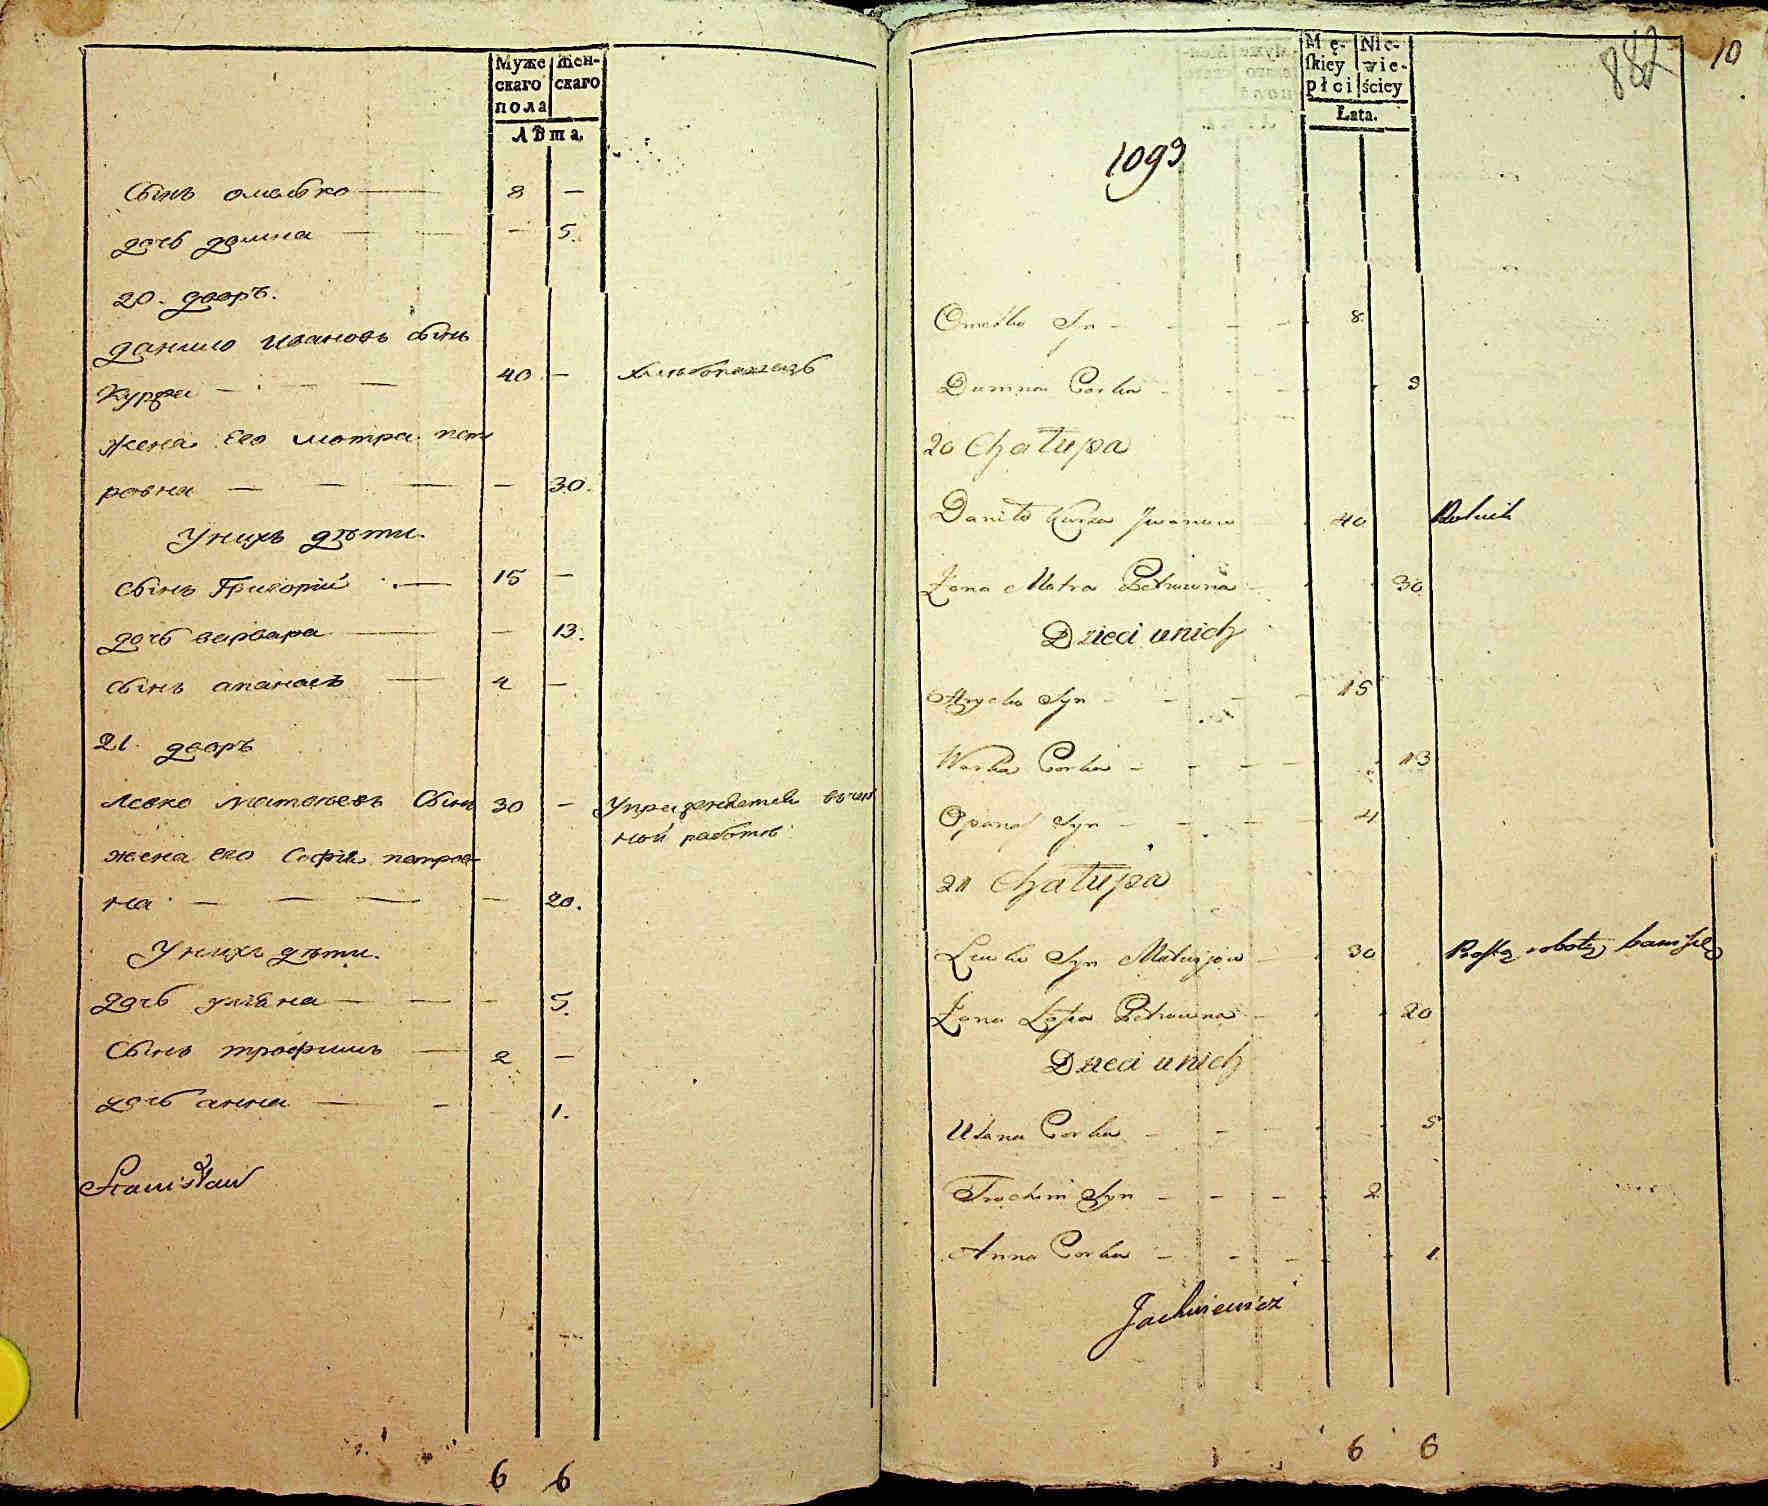 Муже
скаго
пола
Жен-
скаго
Лѣта.
сынъ омелько 8 —
дочь домна — 5.
20. дворъ.
данило Ивановъ сынъ
Курза 40 — хлѣбопашецъ
жена его мотра пет
ровна — 30.
У нихъ дѣти.
сынъ Григорій 15 —
дочь варвара — 13.
сынъ апанасъ 4 —
21. дворъ
Левко матвѣевъ Сынъ 30 — Упражняется въ чер
ной работѣ
жена его Софія петров
на — 20.
У нихъ дѣти.
дочь уляна — 5.
Сынъ трофимъ 2 —
дочь анна — 1.
Stanisław
6 6
Mę-
ſkiey
płci
Nie-
wie-
ściey
Łata.
882
10
1093
Omelko Syn 8
Dumna Corka
20 Chałupa
Daniło Kurza Jwanow 40 Rolnik
Żona Motra Petrowna 30
Dzieci unich
Hryćko Syn 15
Warka Corka 13
Opanas Syn 4
21 Chałupa
Lewko Syn Matwijow 30 robotą bawi się
Żona Petrowna 20
Dzieci unich
Ulana Corka 5
Trochim Syn 2
Anna Corka 1
Jachniewicz
6 6